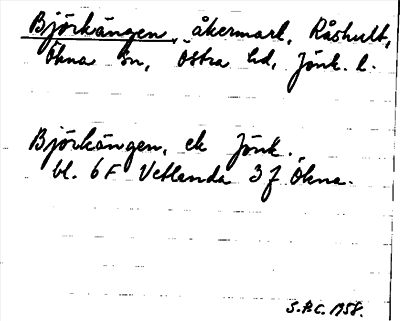 Björkängen, åkermark, Råshult,
Ökna sn, Östra hd, Jönk. l.
Björkängen, ek Jönk.
bl. 6F Vetlanda 3f Ökna.
S.B.C. 1958.